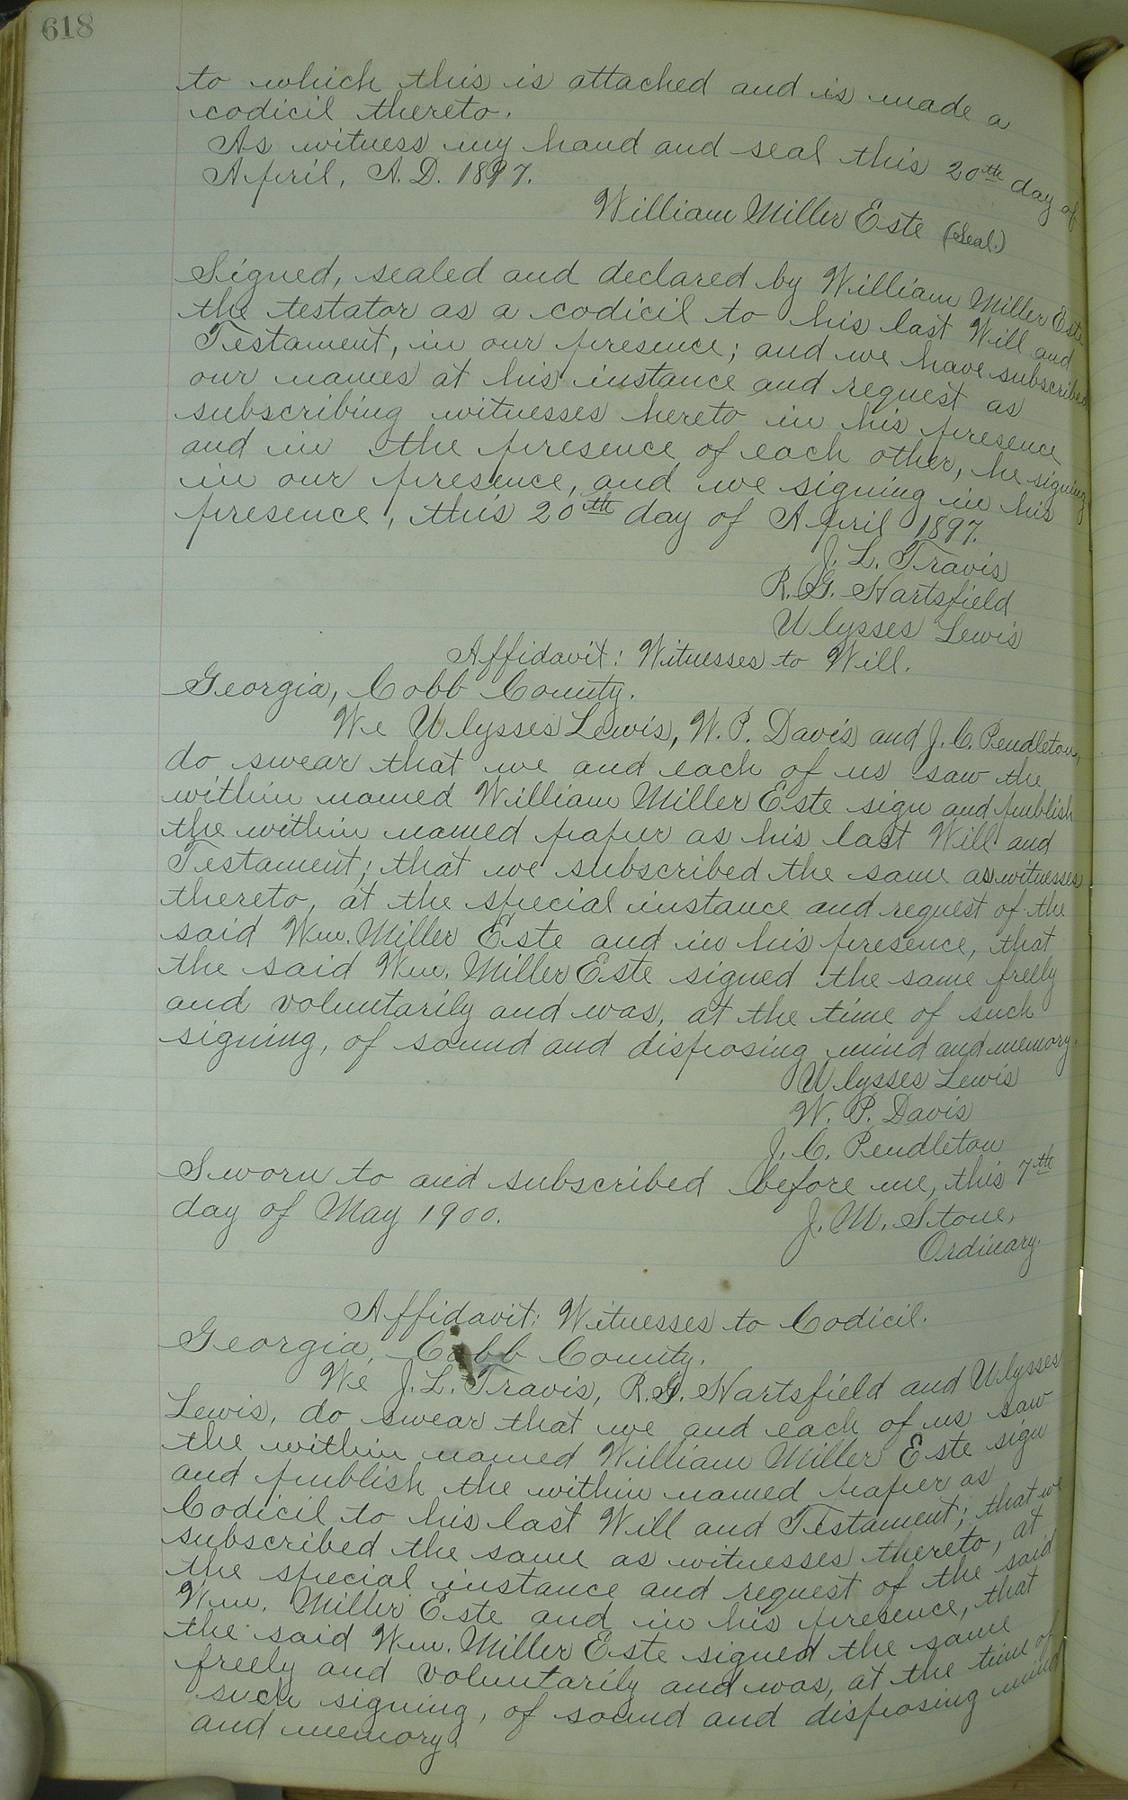 618
to which this is attached and is made a
codicil thereto.
As witness my hand and seal this 20th day of
April, A.D. 1897.
William Miller Este (Seal.)
Signed, sealed and declared by William Miller Este
the testator as a codicil to his last Will and
Testament, in our presence; and we have subscribed
our names at his instance and request as
subscribing witnesses hereto in his presence
and in the presence of each other, he signing
in our presence, and we signing in his
presence, this 20th day of April 1897.
J. L. Travis
R. G. Hartsfield
Ulysses Lewis
Affidavit: Witnesses to Will.
Georgia, Cobb County.
We Ulysses Lewis, W. P. Davis and J. C. Pendleton,
do swear that we and each of us saw the
within named William Miller Este sign and publish
the within named paper as his last Will and
Testament; that we subscribed the same as witnesses
thereto, at the special instance and request of the
said Wm. Miller Este and in his presence, that
the said Wm. Miller Este signed the same freely
and voluntarily and was, at the time of such
signing, of sound and disposing mind and memory.
Ulysses Lewis
W. P. Davis
J. C. Pendleton
Sworn to and subscribed before me, this 7th
day of May 1900. J. M. Stone,
Ordinary.
Affidavit: Witnesses to Codicil.
Georgia, Cobb County.
We J. L. Travis, R. G. Hartsfield and Ulysses
Lewis, do swear that we and each of us saw
the within named William Miller Este sign
and publish the within named paper as
Codicil to his last Will and Testament; that we
subscribed the same as witnesses thereto, at
the special instance and request of the said
Wm. Miller Este and in his presence, that
the said Wm. Miller Este signed the same
freely and voluntarily and was, at the time of
such signing, of sound and disposing mind
and memory.